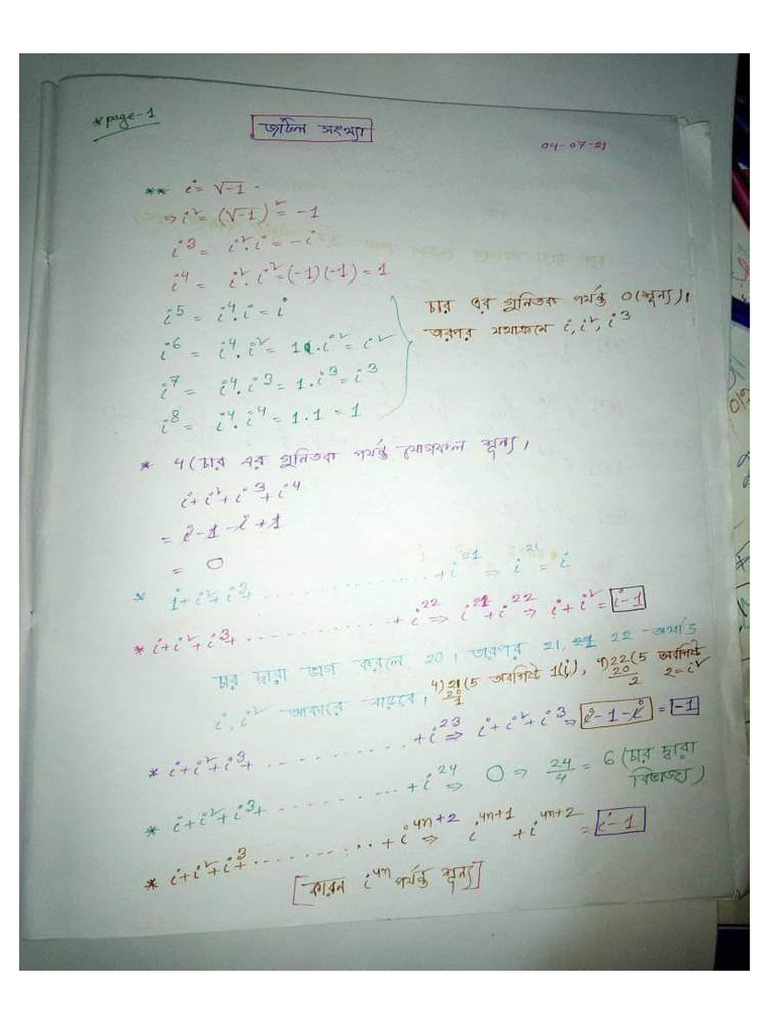 *page-1
জটিল সংখ্যা
04-07-21
** i = √-1 .
⇒ i² = (√-1)² = -1
i³ = i².i = -i
i⁴ = i². i² = (-1)(-1) = 1
i⁵ = i⁴.i = i
i⁶ = i⁴. i² = 1 . i² = i²
i⁷ = i⁴. i³ = 1 . i³ = i³
i⁸ = i⁴. i⁴ = 1 . 1 = 1
চার এর গুনিতক পর্যন্ত 0 (শূন্য)।
তারপর যথাক্রমে i, i², i³
* 4 (চার এর গুনিতক পর্যন্ত যোগফল শূন্য।
i + i² + i³ + i⁴
= i - 1 - i + 1
= 0
* i + i² + i³ + .................. + i²¹ ⇒ i²¹ = i
* i + i² + i³ + .................. + i²² ⇒ i²¹ + i²² ⇒ i + i² = i-1
চার দ্বারা ভাগ করলে 20। তারপর 21, 22 অর্থাৎ
i, i² আকারে বাড়বে। 4) 21 (5 অবশিষ্ট 1(i), 4) 22 (5 অবশিষ্ট
20 20 2 = i²
1 2
* i + i² + i³ + .................. + i²³ ⇒ i + i² + i³ ⇒ i - 1 - i = -1
* i + i² + i³ + .................. + i²⁴ ⇒ 0 ⇒ 24/4 = 6 (চার দ্বারা
বিভাজ্য)
* i + i² + i³ + .................. + i⁴ⁿ⁺² ⇒ i⁴ⁿ⁺¹ + i⁴ⁿ⁺² = i-1
[কারন i⁴ⁿ পর্যন্ত শূন্য]